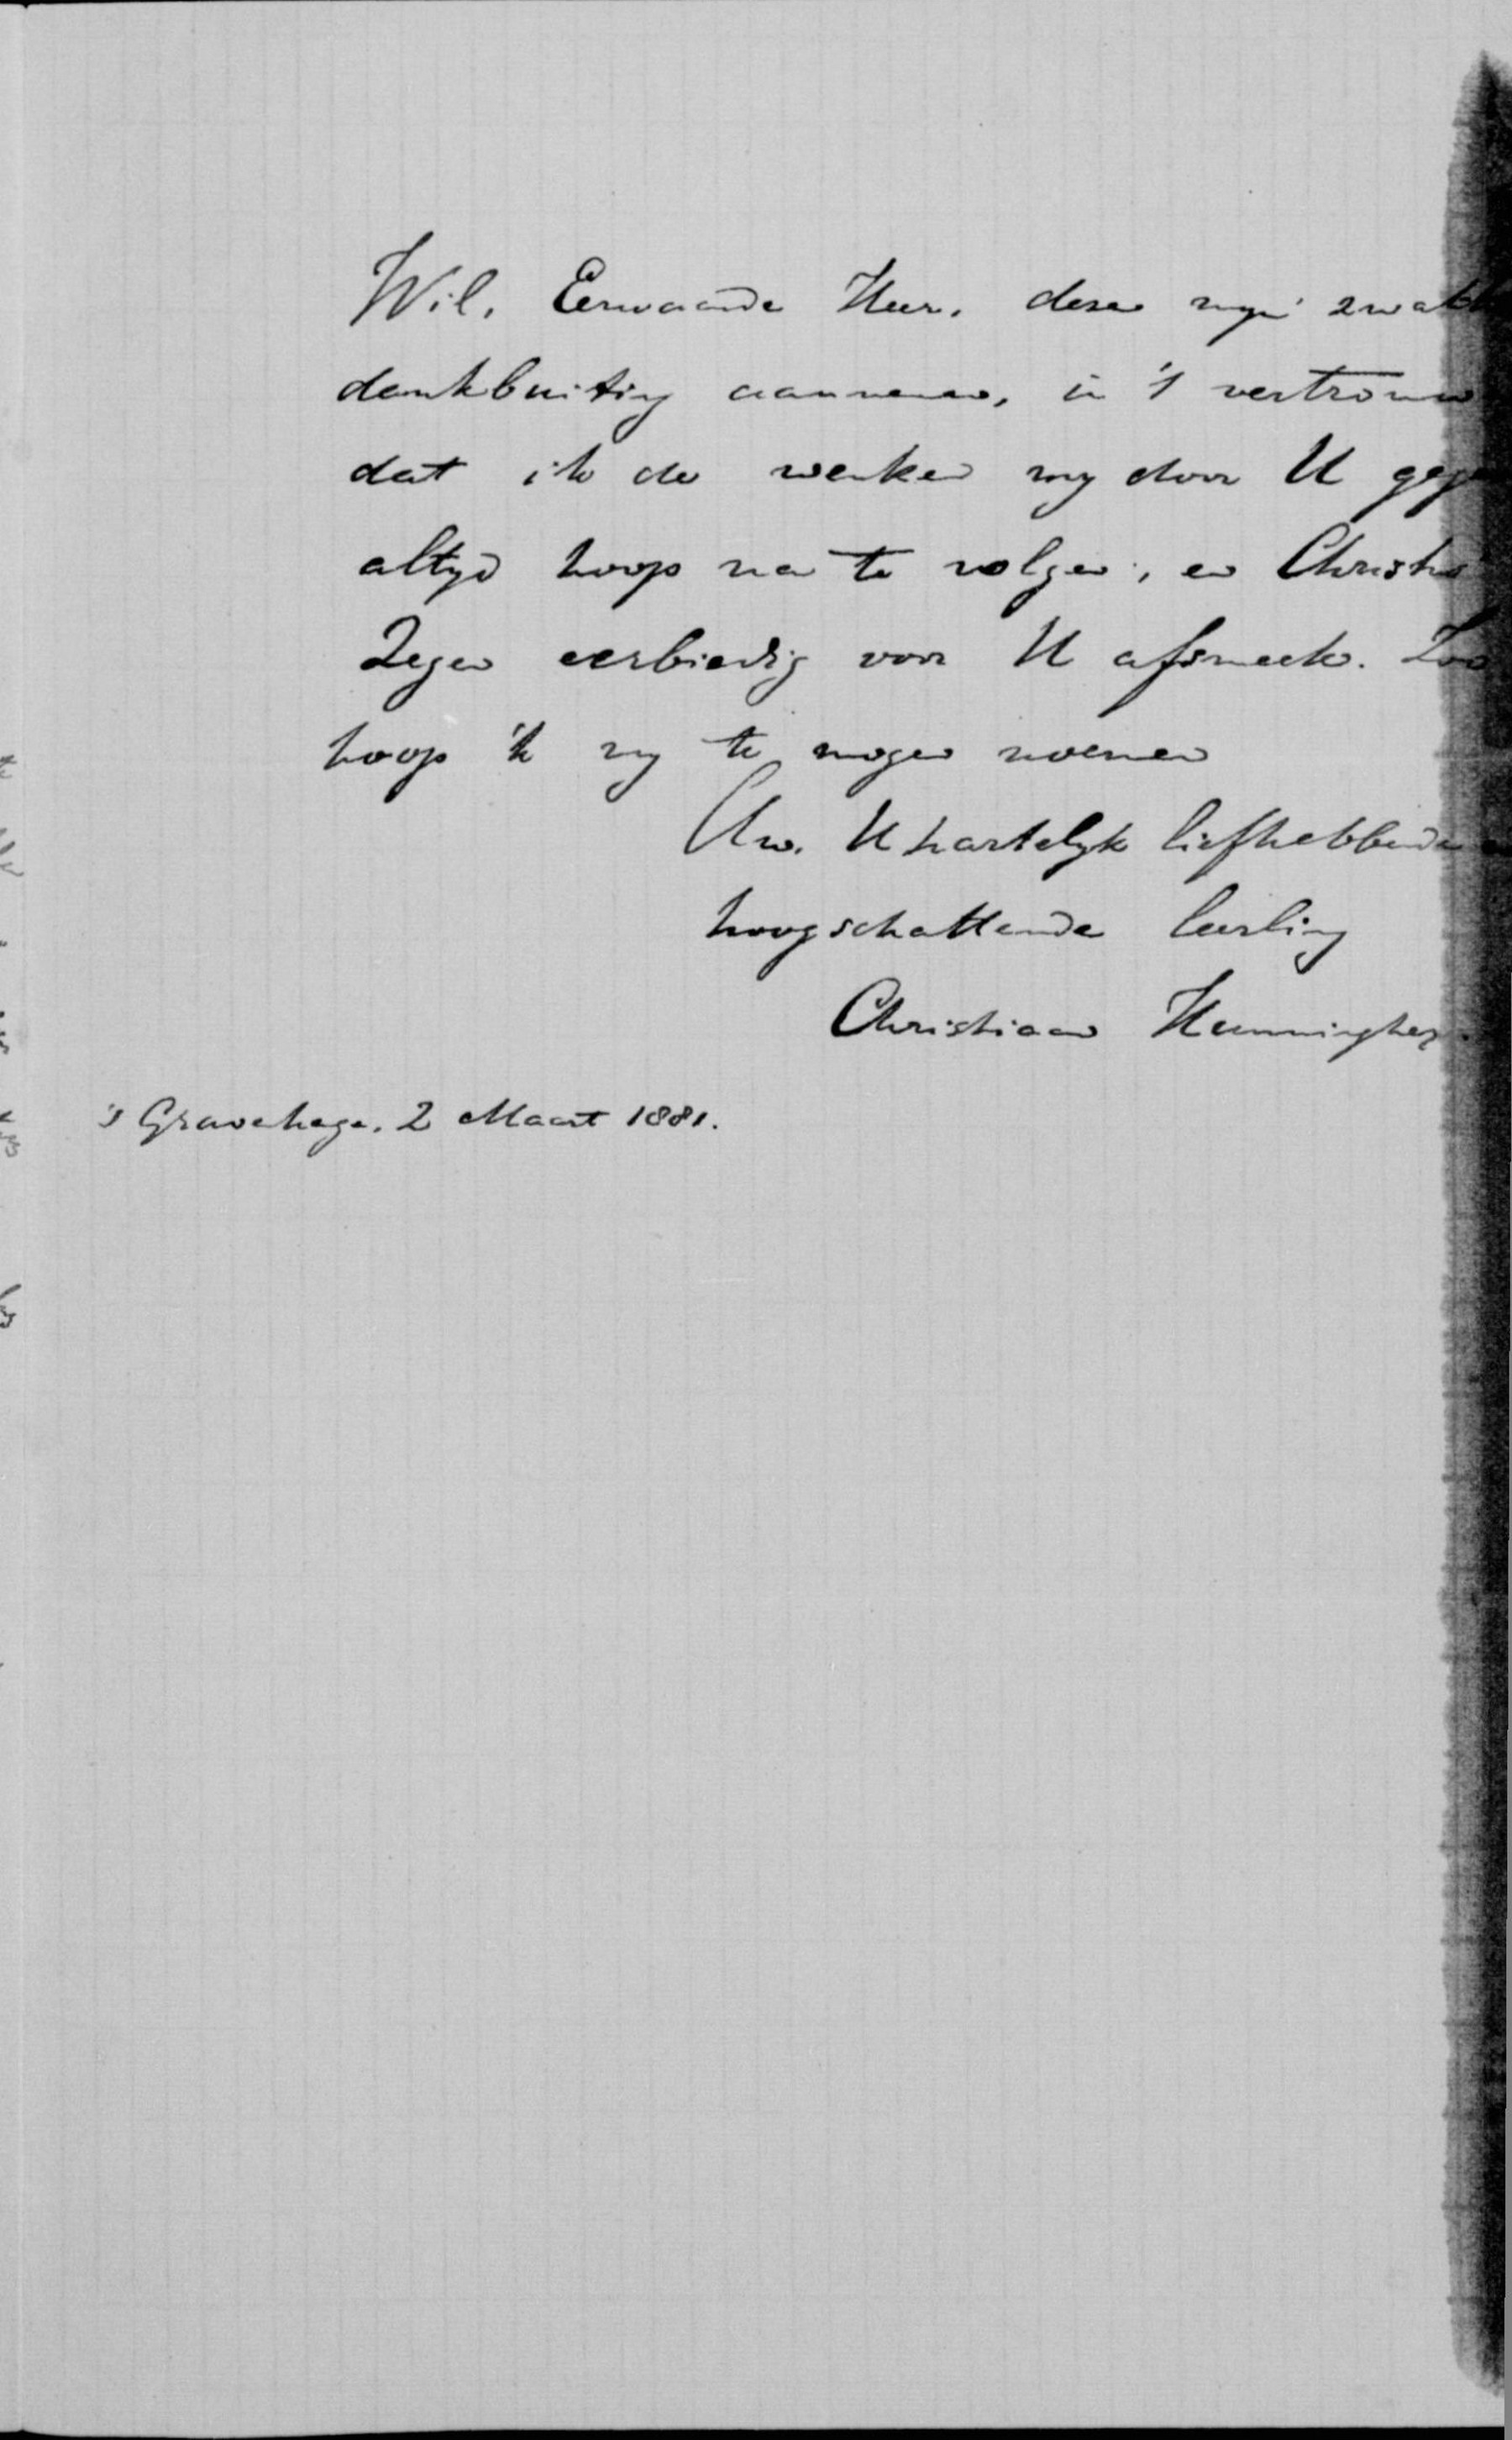 Wil, Eerwaarde Heer, deze mijn zwakke
dankbuiting aannemen, in 't vertrouwen
dat ik de wenken my door U gege
altyd hoop na te volgen, en Christus
Zegen eerbiedig voor U afsmeek. Zoo
hoop 'k my te mogen noemen
Uw. U hartelyk liefhebbende
hoogschattende leerling
Christiaan Hunningher.
's Gravenhage. 2 Maart 1881.